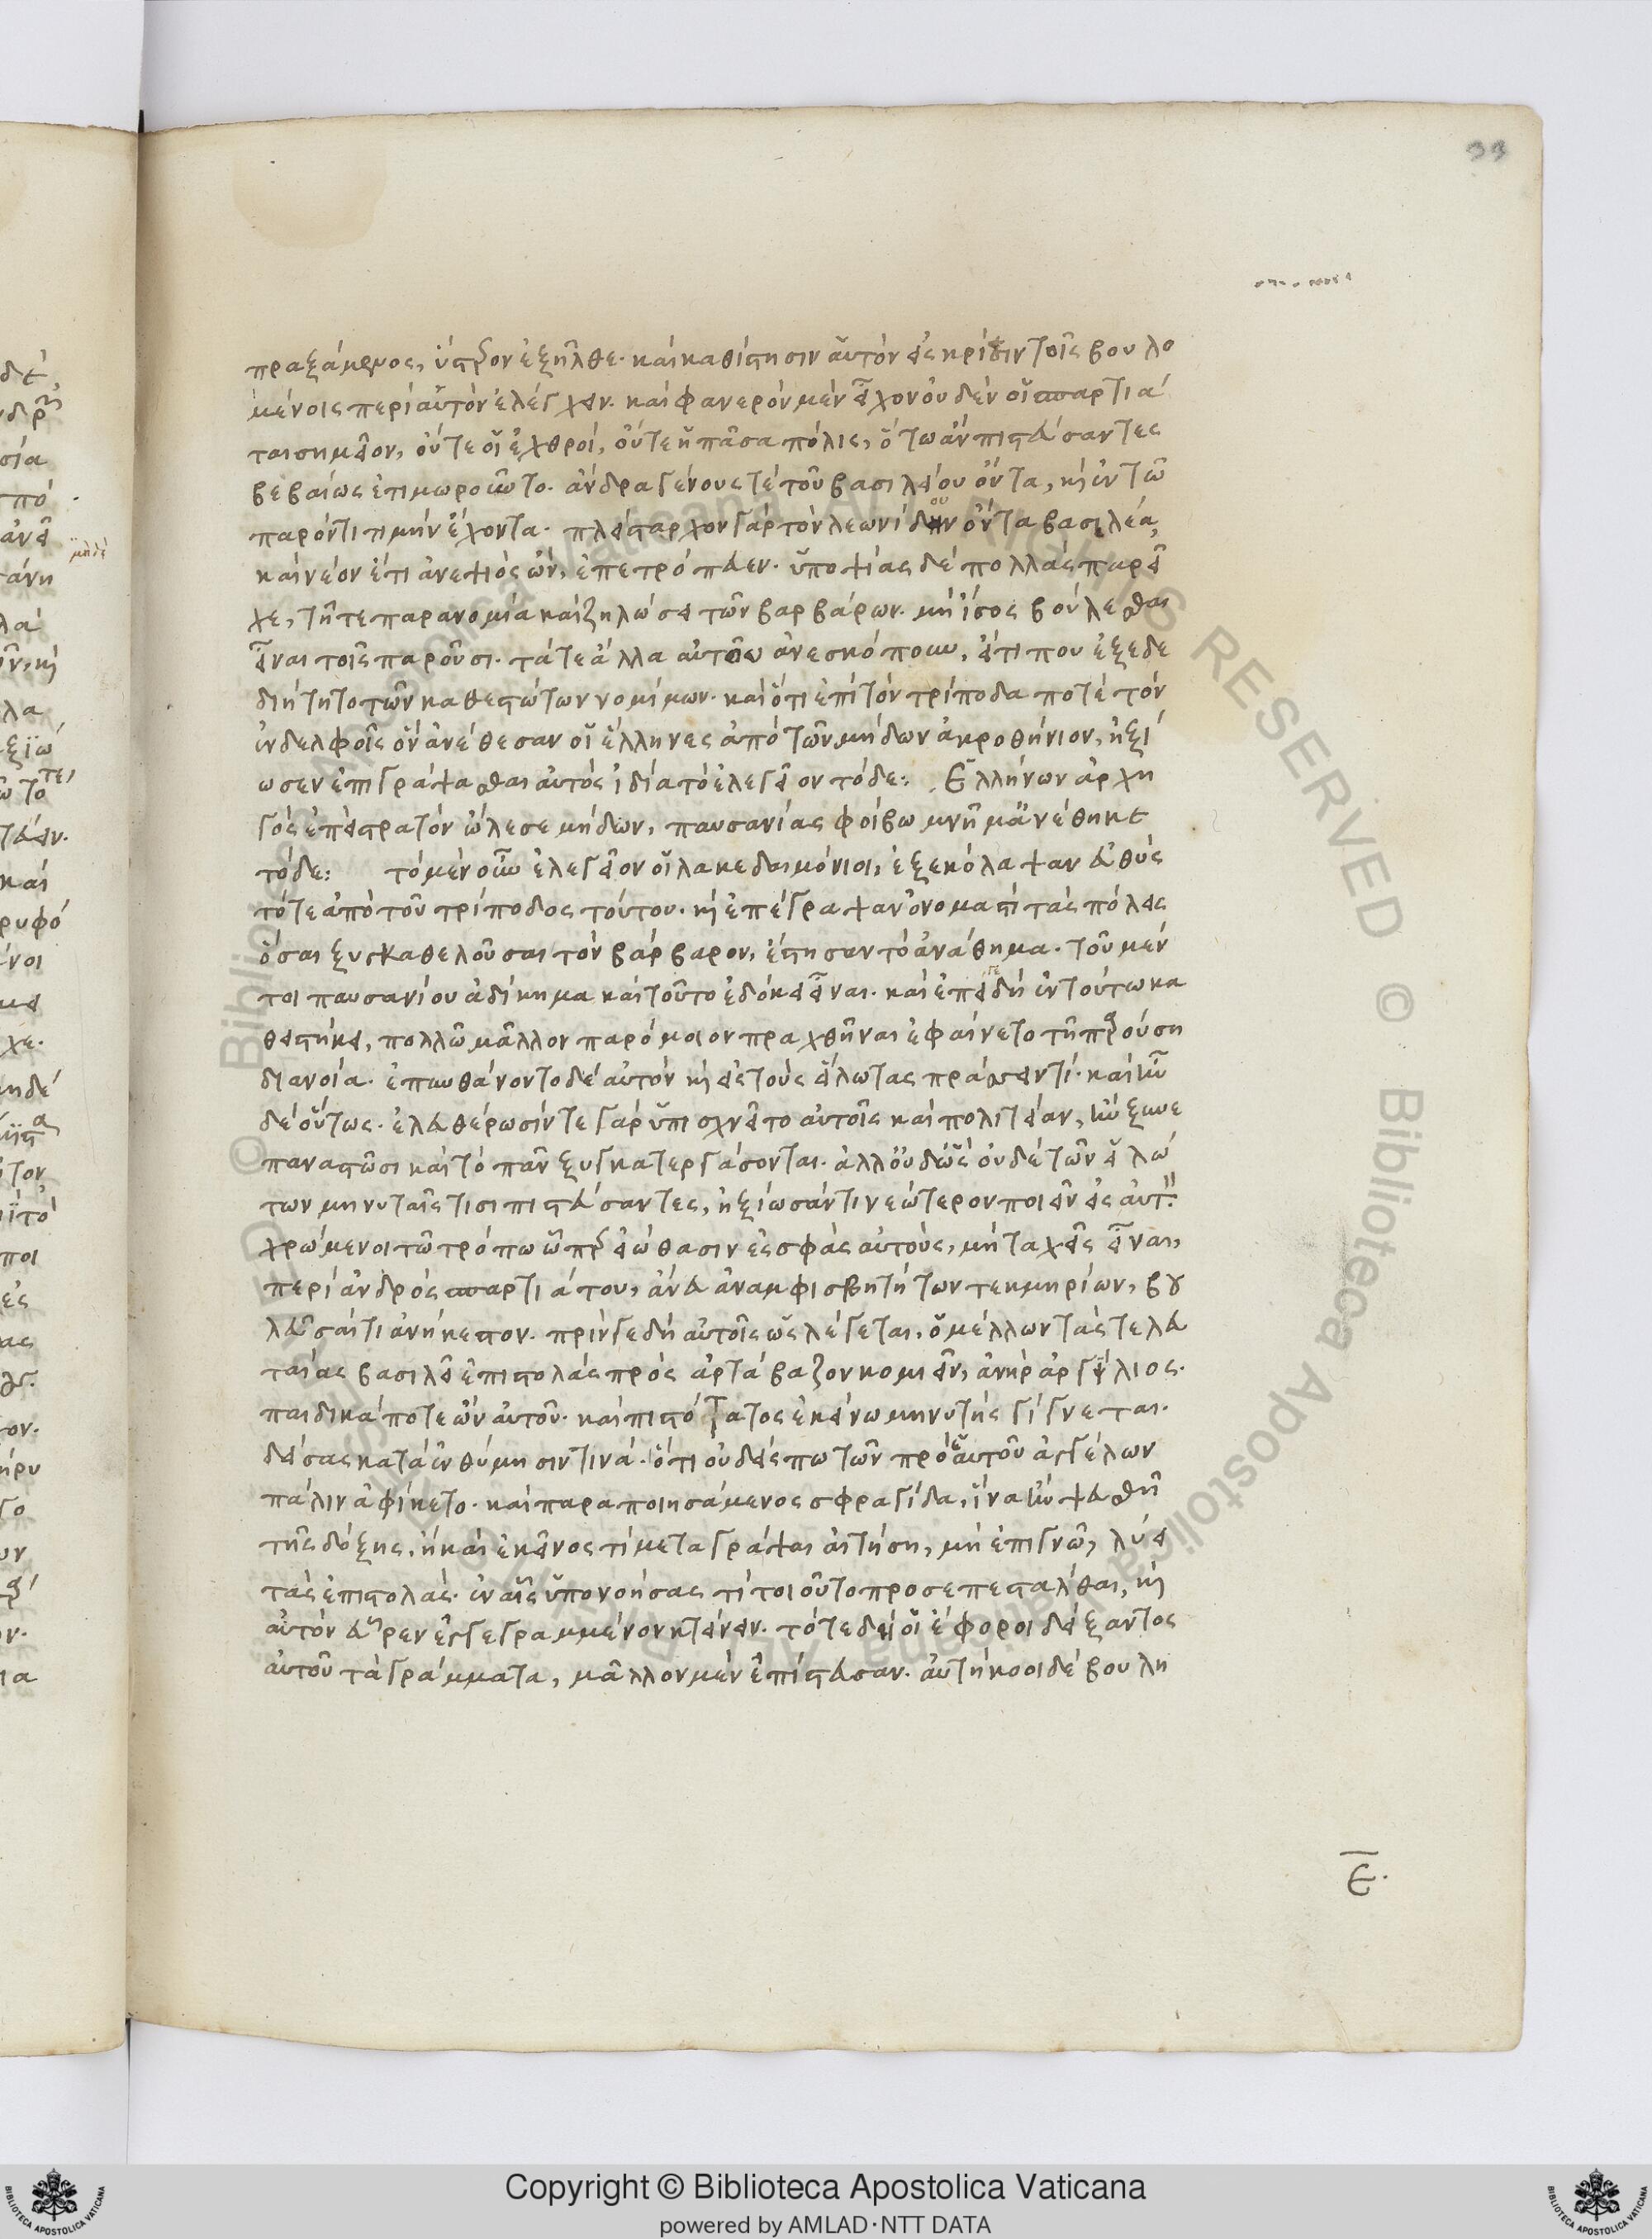 πραξάμενος, ὕστερον ἐξῆλθε· καὶ καθίστησιν αὑτὸν ἐς κρίσιν τοῖς βουλο
μένοις περὶ αὐτὸν ἐλέγχειν· καὶ φανερὸν μὲν εἶχον οὐδὲν οἱ σπαρτιά
ται σημεῖον, οὔτε οἱ ἐχθροί, οὔτε ἡ πᾶσα πόλις, ὅτω ἂν πιστεύσαντες
βεβαίως ἐτιμωροῦντο· ἄνδρα γένους τὲ τοῦ βασιλείου ὄντα, κὶ ἐν τῶ
παρόντι τιμὴν ἔχοντα· πλείσταρχον γὰρ τὸν λεωνίδου ὄντα βασιλέα,
καὶ νέον ἔτι ἀνεψιὸς ὢν, ἐπετρόπευεν· ὑποψίας δὲ πολλὰς παρεῖ
χε, τῆ τε παρανομία καὶ ζηλώσει τῶν βαρβάρων· μὴ ἴσος βούλεσθαι
εἶναι τοῖς παροῦσι· τά τε ἄλλα αὐτοῦ ἀνεσκόπουν, εἴ τι που ἐξεδε
διήτητο τῶν καθεστώτων νομίμων· καὶ ὅτι ἐπὶ τὸν τρίποδα ποτὲ τὸν
ἐν δελφοῖς ὃν ἀνέθεσαν οἱ ἕλληνες ἀπὸ τῶν μήδων ἀκροθήνιον, ἠξί
ωσεν ἐπιγράψασθαι αὐτὸς ἰδία τὸ ἐλεγεῖον τόδε: Ἑλλήνων ἀρχη
γὸς ἐπεὶ στρατὸν ὤλεσε μήδων, παυσανίας φοίβω μνῆμ' ἀνέθηκε
τόδε: τὸ μὲν οὖν ἐλεγεῖον οἱ λακεδαιμόνιοι, ἐξεκόλαψαν εὐθὺς
τότε ἀπὸ τοῦ τρίποδος τούτου· κὶ ἐπέγραψαν ὀνομαστὶ τὰς πόλεις
ὅσαι ξυγκαθελοῦσαι τὸν βάρβαρον, ἔστησαν τὸ ἀνάθημα· τοῦ μέν
τοι παυσανίου ἀδίκημα καὶ τοῦτο ἐδόκει εἶναι· καὶ ἐπειδή γε ἐν τούτω κα
θειστήκει, πολλῶ μᾶλλον παρόμοιον πραχθῆναι ἐφαίνετο τῆ παρούση
διανοία· ἐπυνθάνοντο δὲ αὐτὸν κὶ ἐς τοὺς εἵλωτας πράσσειν τί· καὶ ἦν
δὲ οὕτως· ἐλευθέρωσίν τε γὰρ ὑπισχνεῖτο αὐτοῖς καὶ πολιτείαν, ἢν ξυνε
παναστῶσι καὶ τὸ πᾶν ξυγκατεργάσονται· ἀλλ' οὐδ' ὣς οὐδὲ τῶν εἱλώ
των μηνυταῖς τισι πιστεύσαντες, ἠξίωσάν τι νεώτερον ποιεῖν ἐς αὐτόν·
χρώμενοι τῶ τρόπω ὧπερ εἰώθασιν ἐς σφὰς αὐτούς, μὴ ταχεῖς εἶναι,
περὶ ἀνδρὸς σπαρτιάτου, ἄνευ ἀναμφισβητήτων τεκμηρίων, βου
λεῦσαί τι ἀνήκεστον· πρίν γε δὴ αὐτοῖς ὡς λέγεται, ὁ μέλλων τὰς τελευ
ταίας βασιλεῖ ἐπιστολὰς πρὸς ἀρτάβαζον κομιεῖν, ἀνὴρ ἀργίλιος·
παιδικά ποτε ὢν αὐτοῦ· καὶ πιστότατος ἐκείνω μηνυτὴς γίγνεται·
δείσας κατὰ ἐνθύμησίν τινά· ὅτι οὐδείς πω τῶν πρὸ ἑαυτοῦ ἀγγέλων
πάλιν ἀφίκετο· καὶ παραποιησάμενος σφραγίδα, ἵνα ἢν ψευσθῆ
τῆς δόξης, ἢ καὶ ἐκεῖνος τί μεταγράψαι αἰτήση, μὴ ἐπιγνῶ, λύει
τὰς ἐπιστολὰς· ἐν αἷς ὑπονοήσας τί τοιοῦτο προσεπεστάλθαι, κὶ
αὐτὸν εὗρεν ἐγγεγραμμένον κτείνειν· τότε δὴ οἱ ἔφοροι δείξαντος
αὐτοῦ τὰ γράμματα, μᾶλλον μὲν ἐπίστευσαν· αὐτήκοοι δὲ βουλη
ε̅·